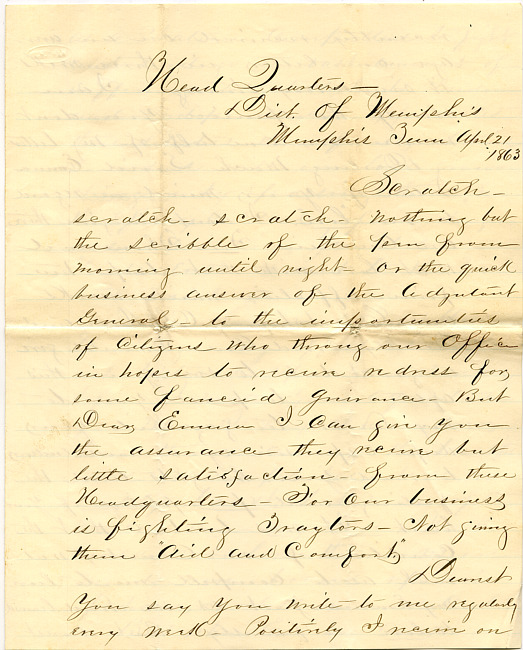 Head Quarters —
Dist. of Memphis
Memphis Tenn Apl 21
1863
Scratch —
scratch — scratch — nothing but
the scribble of the pen from
morning until night — or the quick
business answer of the Adjutant
General — to the importunities
of Citizens who throng our Office
in hopes to receive redress for
some fancied grievance — But
Dear Emma I can give you
the assurance they receive but
little satisfaction — from these
Headquarters — For our business
is fighting Traytors — Not giving
them "Aid and Comfort"
Dearest
You say you write to me regularly
every week — Positively I receive on